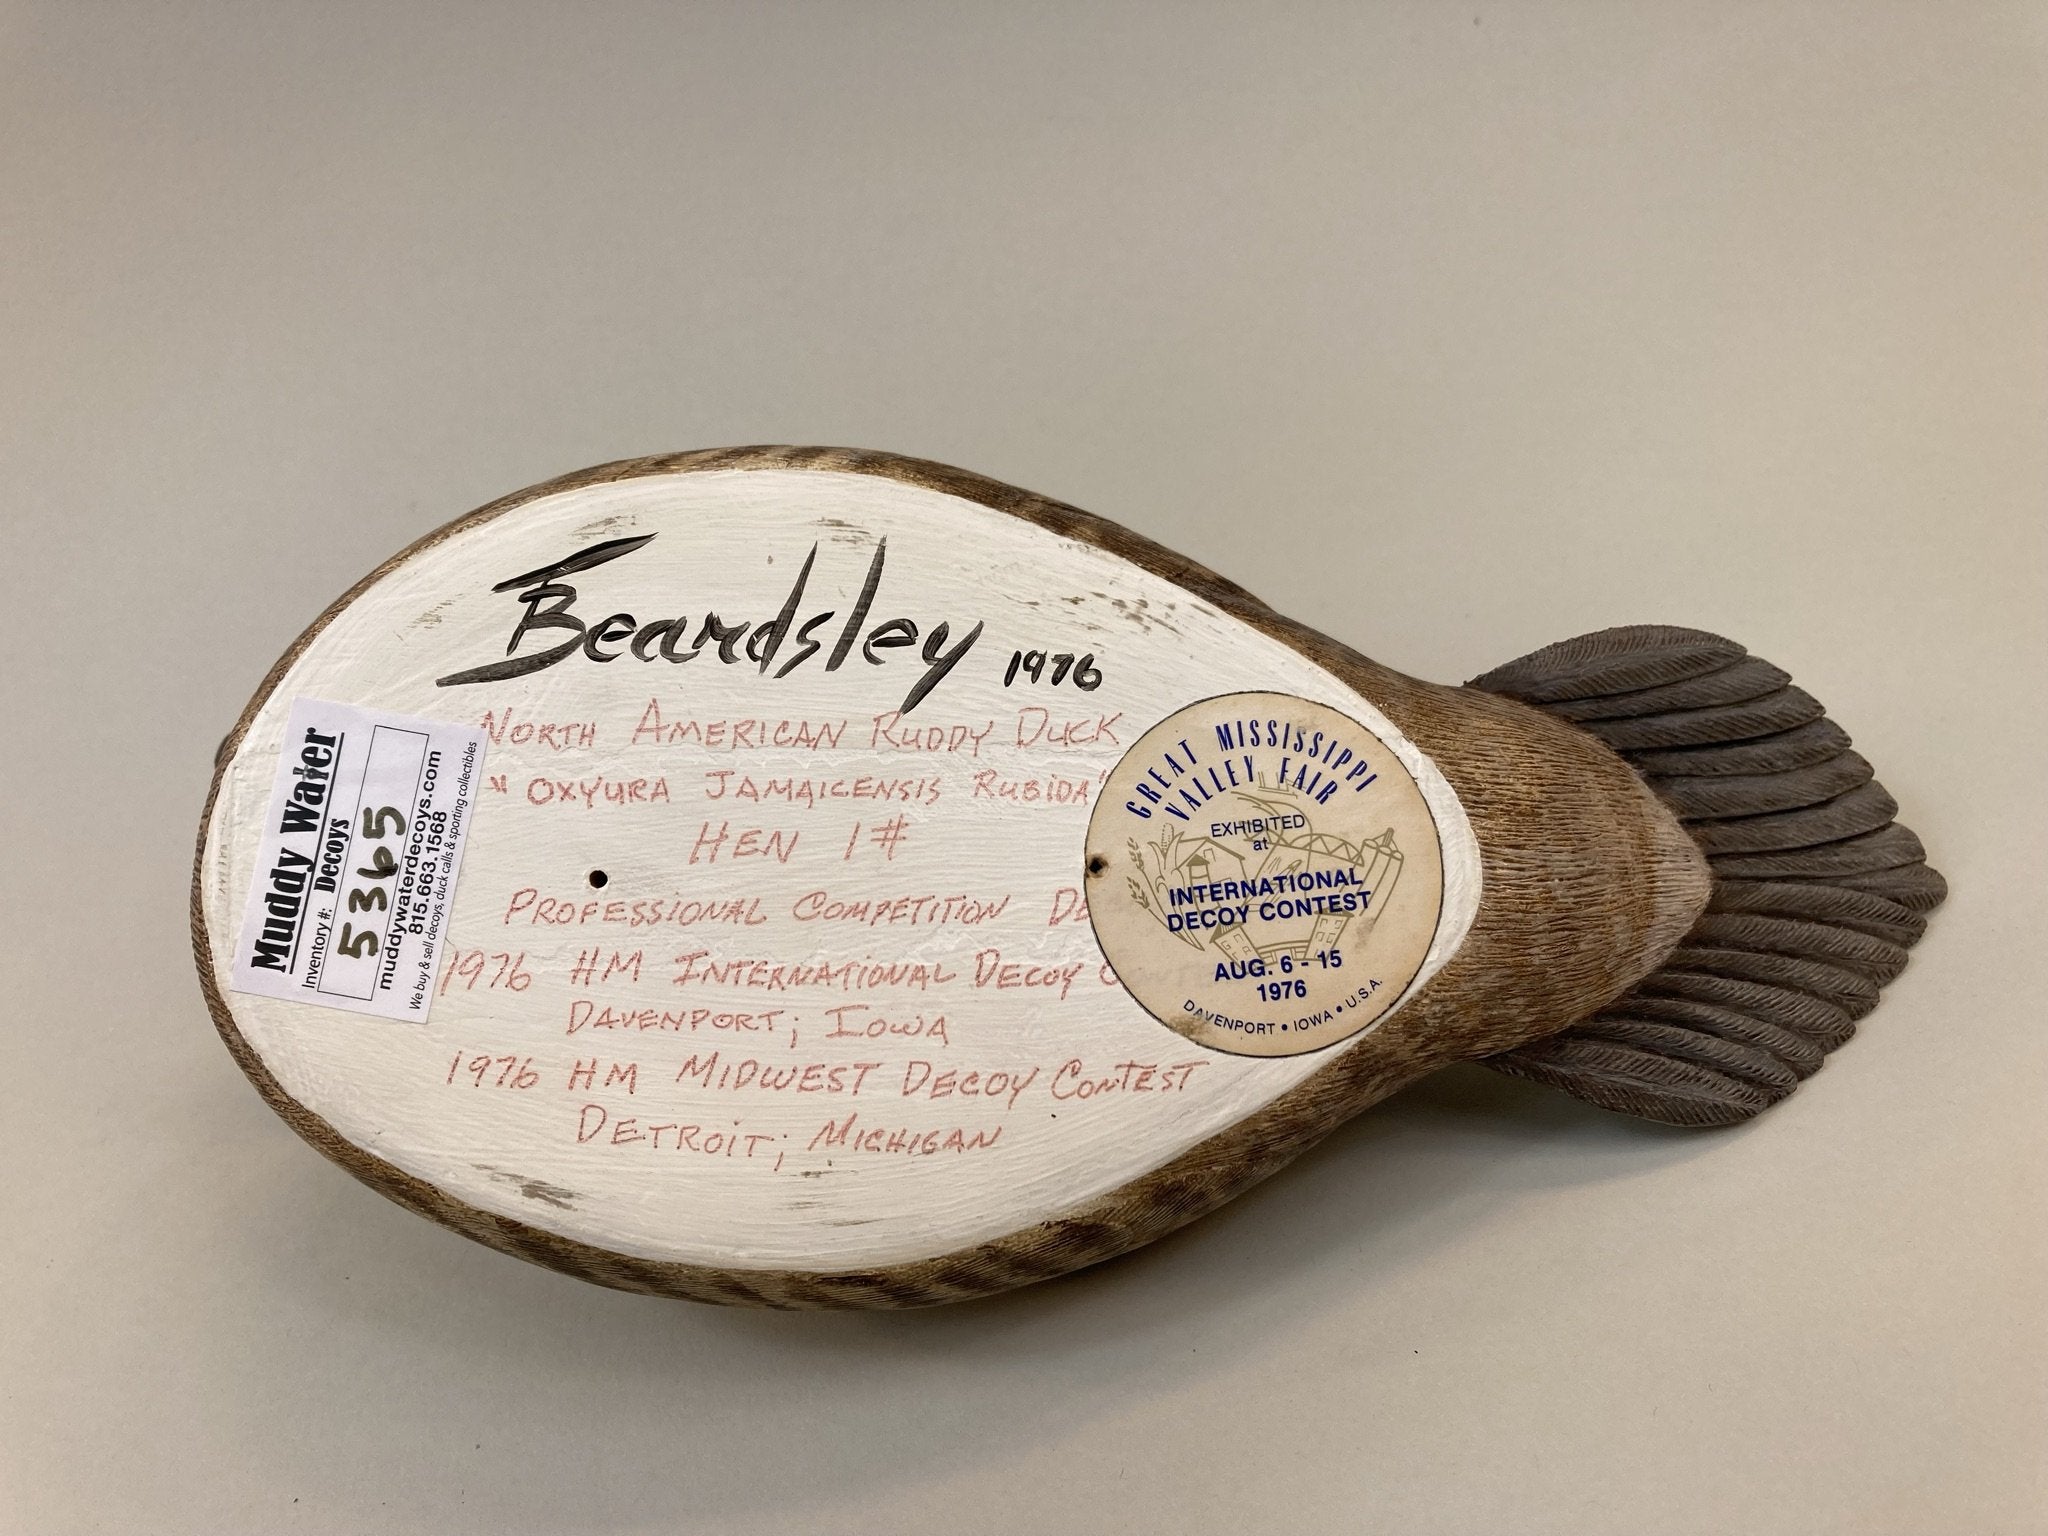 Beardsley 1976
NORTH AMERICAN RUDDY DUCK
"OXYURA JAMAICENSIS RUBIDA"
HEN 1#
PROFESSIONAL COMPETITION
1976 HM INTERNATIONAL DECOY
DAVENPORT; IOWA
1976 HM MIDWEST DECOY CONTEST
DETROIT; MICHIGAN
Muddy Water
Decoys
Inventory #:
5365
muddywaterdecoys.com
815.663.1568
We buy & sell decoys, duck calls & sporting collectibles
GREAT MISSISSIPPI
VALLEY FAIR
EXHIBITED
at
INTERNATIONAL
DECOY CONTEST
AUG. 6 - 15
1976
DAVENPORT • IOWA • U.S.A.